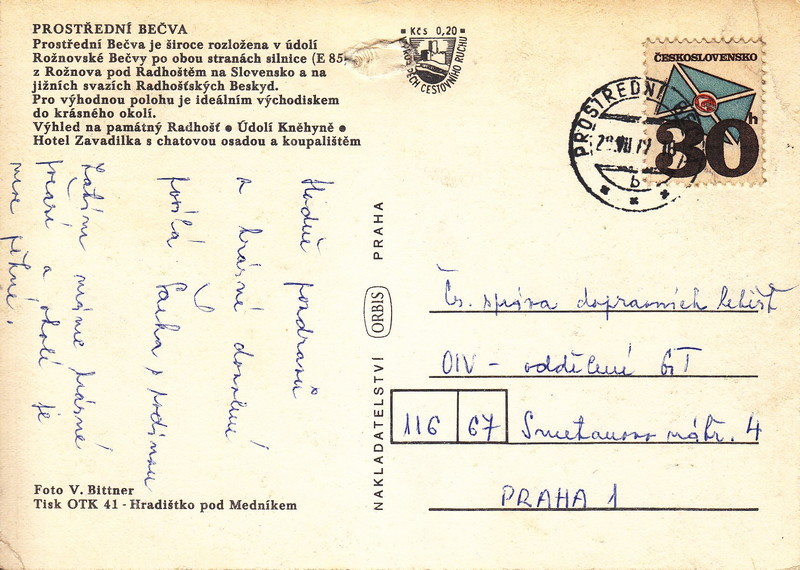 PROSTŘEDNÍ BEČVA
Prostřední Bečva je široce rozložena v údolí
Rožnovské Bečvy po obou stranách silnice (E 85)
z Rožnova pod Radhoštěm na Slovensko a na
jižních svazích Radhošťských Beskyd.
Pro výhodnou polohu je ideálním východiskem
do krásného okolí.
Výhled na památný Radhošť ● Údolí Kněhyně ●
Hotel Zavadilka s chatovou osadou a koupalištěm
Kčs 0,20
CESTOVNÍHO RUCHU
ČESKOSLOVENSKO
30h
PROSTŘEDNÍ
b
Hodně pozdravů
a krásné dovolené
posílá
s rodinou
Zatím máme krásné
počasí a okolí je
moc pěkné.
NAKLADATELSTVÍ ORBIS PRAHA
Čs. správa dopravních letišť
OIV - oddělení GT
116 67 Smetanovo nábř. 4
PRAHA 1
Foto V. Bittner
Tisk OTK 41 - Hradištko pod Medníkem